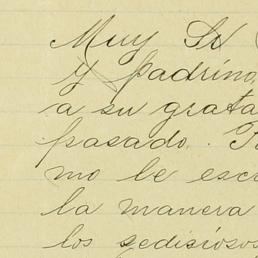 Muy Sr
y padrino,
a su grata
pasado.
mo le esc
la manera
los sedisiosos